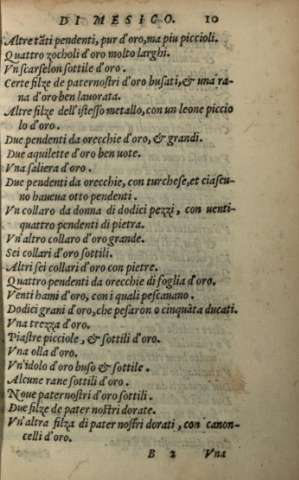 DI MESICO. 10
Altre tãti pendenti, pur d'oro, ma piu piccioli.
Quattro zocholi d'oro molto larghi.
Vn scarselon sottile d'oro.
Certe filze de paternostri d'oro busati, & una ra-
na d'oro ben lauorata.
Altre filze dell'istesso metallo, con un leone piccio
lo d'oro.
Due pendenti da orecchie d'oro, & grandi.
Due aquilette d'oro ben uote.
Vna saliera d'oro.
Due pendenti da orecchie, con turchese, et ciascu-
no haueua otto pendenti.
Vn collaro da donna di dodici pezzi, con uenti-
quattro pendenti di pietra.
Vn'altro collaro d'oro grande.
Sei collari d'oro sottili.
Altri sei collari d'oro con pietre.
Quattro pendenti da orecchie di foglia d'oro.
Venti hami d'oro, con i quali pescauano.
Dodici grani d'oro, che pesaron o cinquãta ducati.
Vna trezza d'oro.
Piastre picciole, & sottili d'oro.
Vna olla d'oro.
Vn'idolo d'oro buso & sottile.
Alcune rane sottili d'oro.
Noue paternostri d'oro sottili.
Due filze de pater nostri dorate.
Vn'altra filza di pater nostri dorati, con canon-
celli d'oro.
B 2 Vna